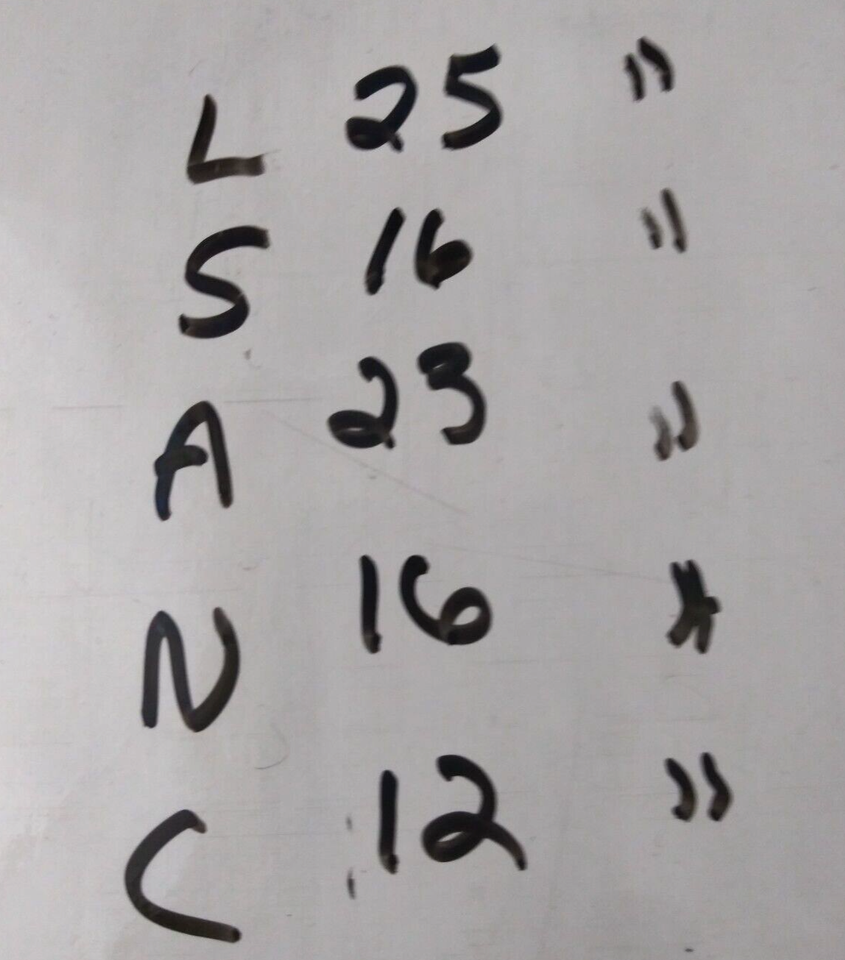 L 25 "
S 16 "
A 23 "
N 16
C 12 "